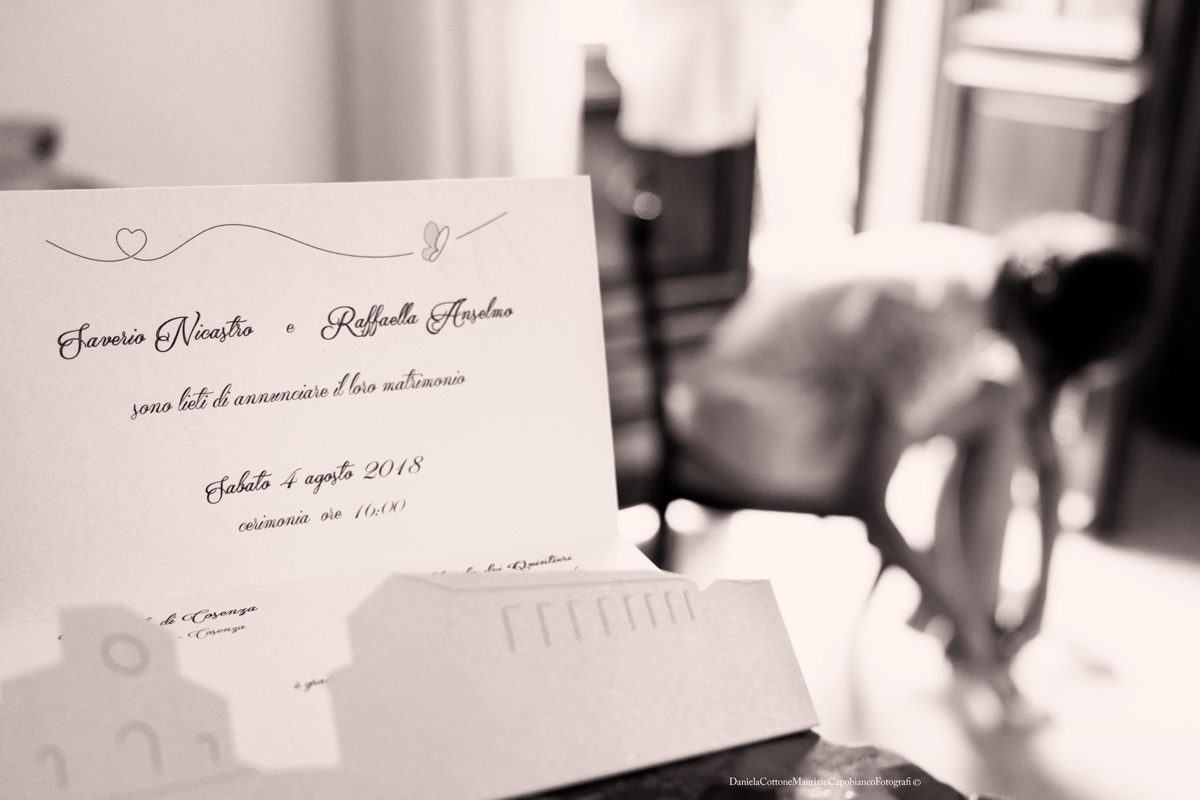 Saverio Nicastro e Raffaella Anselmo
sono lieti di annunciare il loro matrimonio
Sabato 4 agosto 2018
cerimonia ore 16:00
dei Quintieri
di Cosenza
- Cosenza
è gra
DanielaCottoneMaurizioCapobiancoFotografi ©